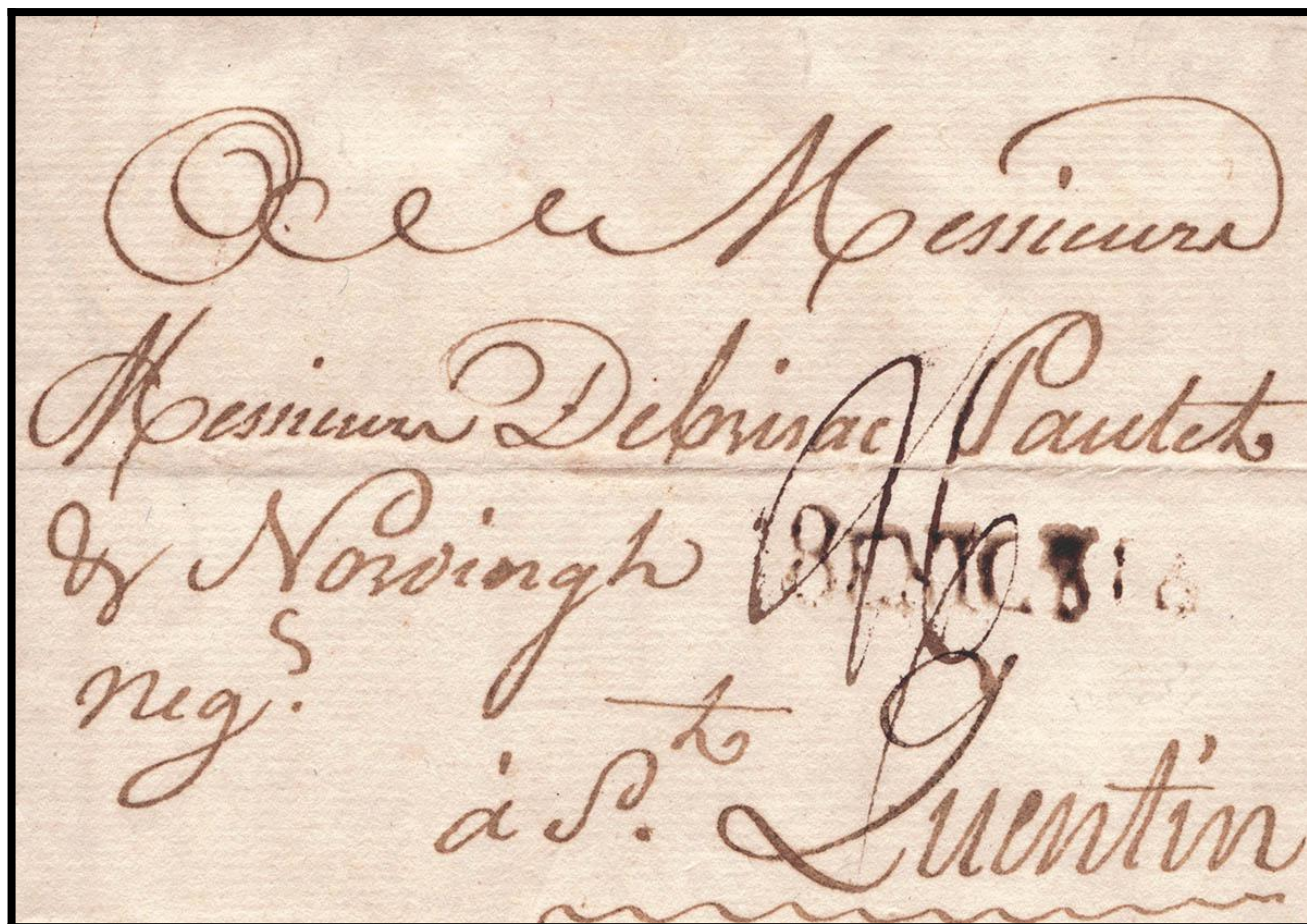 A Messieurs
Messieurs Debrissac Pautet
& Norvingh
neg.s
à S.t Quentin